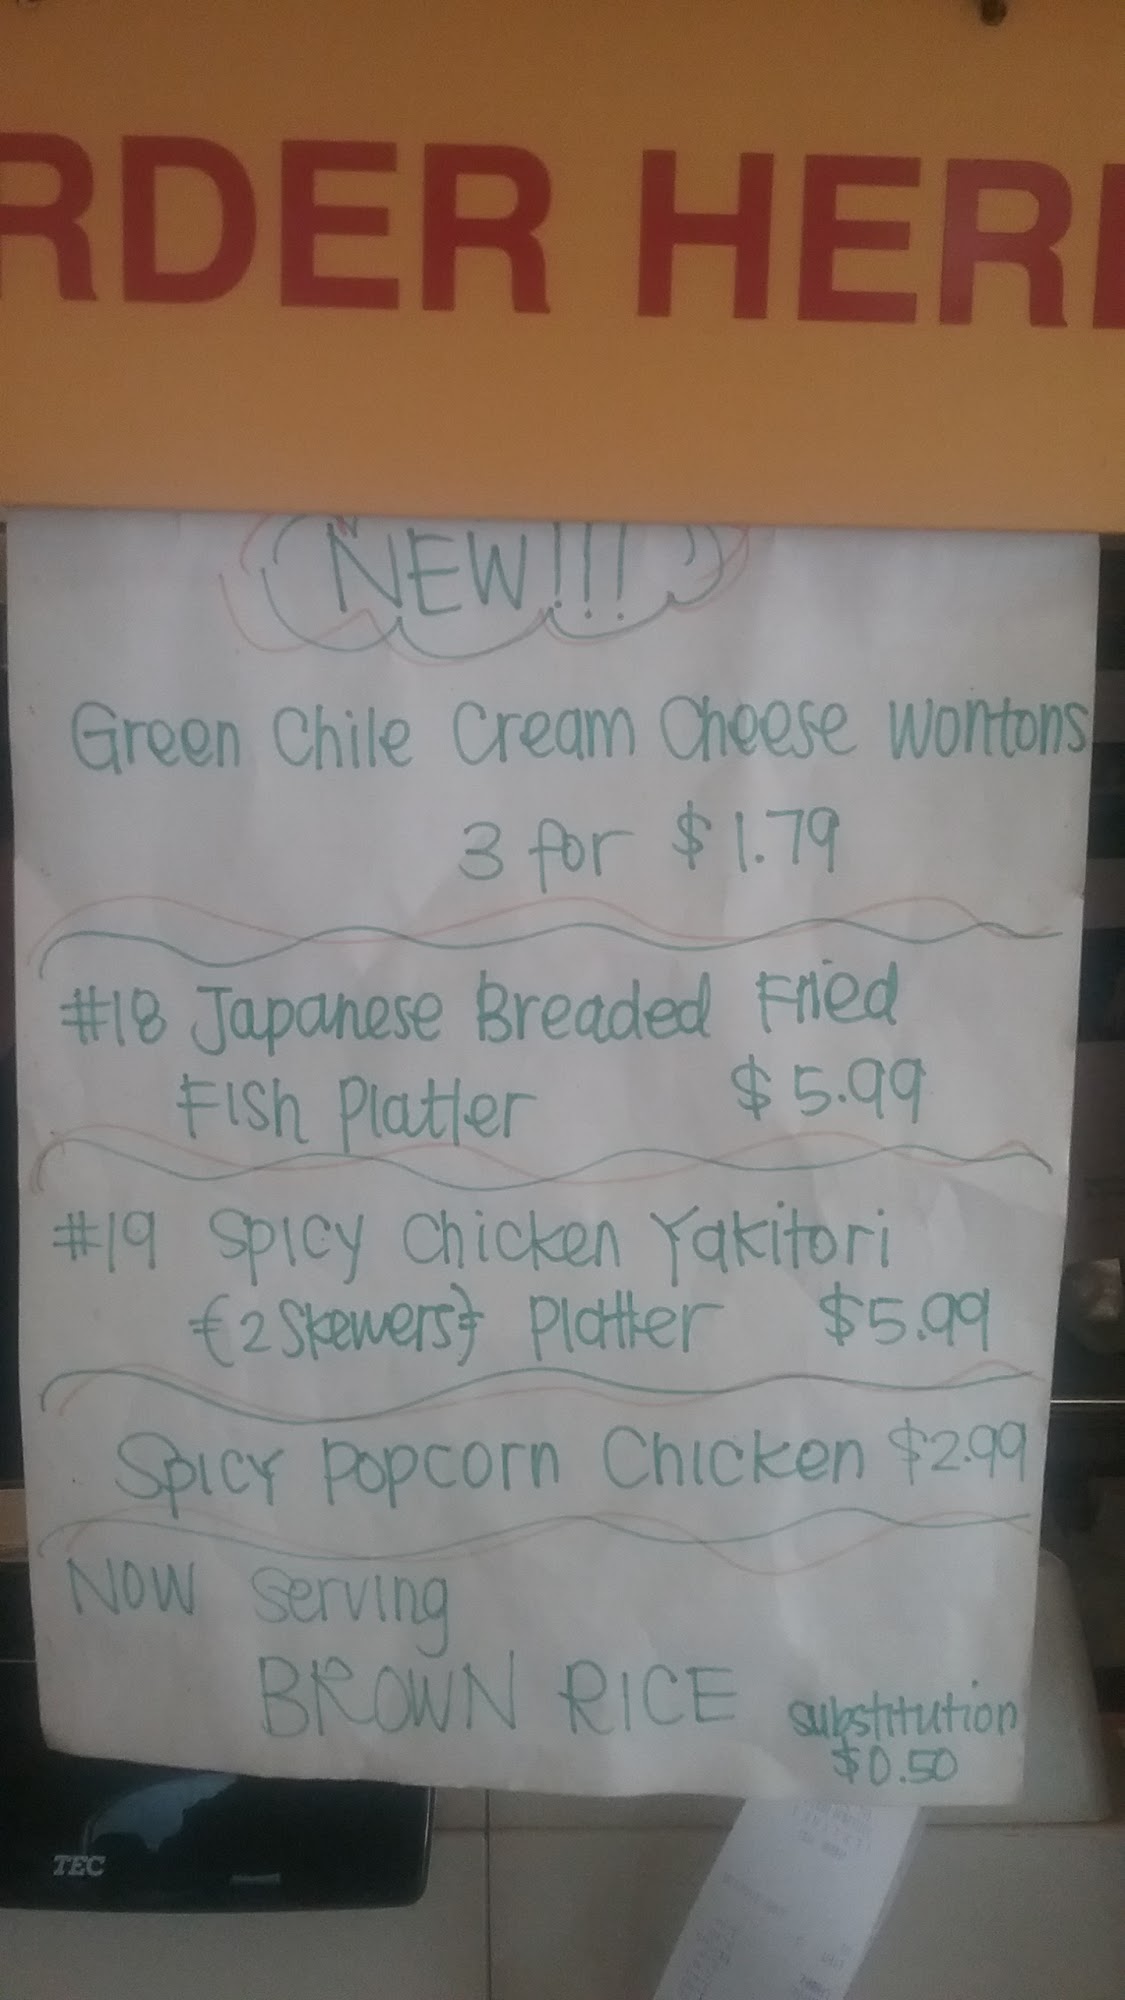 RDER HER
NEW!!!
Green Chile Cream Cheese Wontons
3 for $1.79
#18 Japanese Breaded Fried
Fish Platter $5.99
#19 Spicy Chicken Yakitori
{2 Skewers} Platter $5.99
Spicy Popcorn Chicken $2.99
Now Serving
BROWN RICE substitution
$0.50
TEC